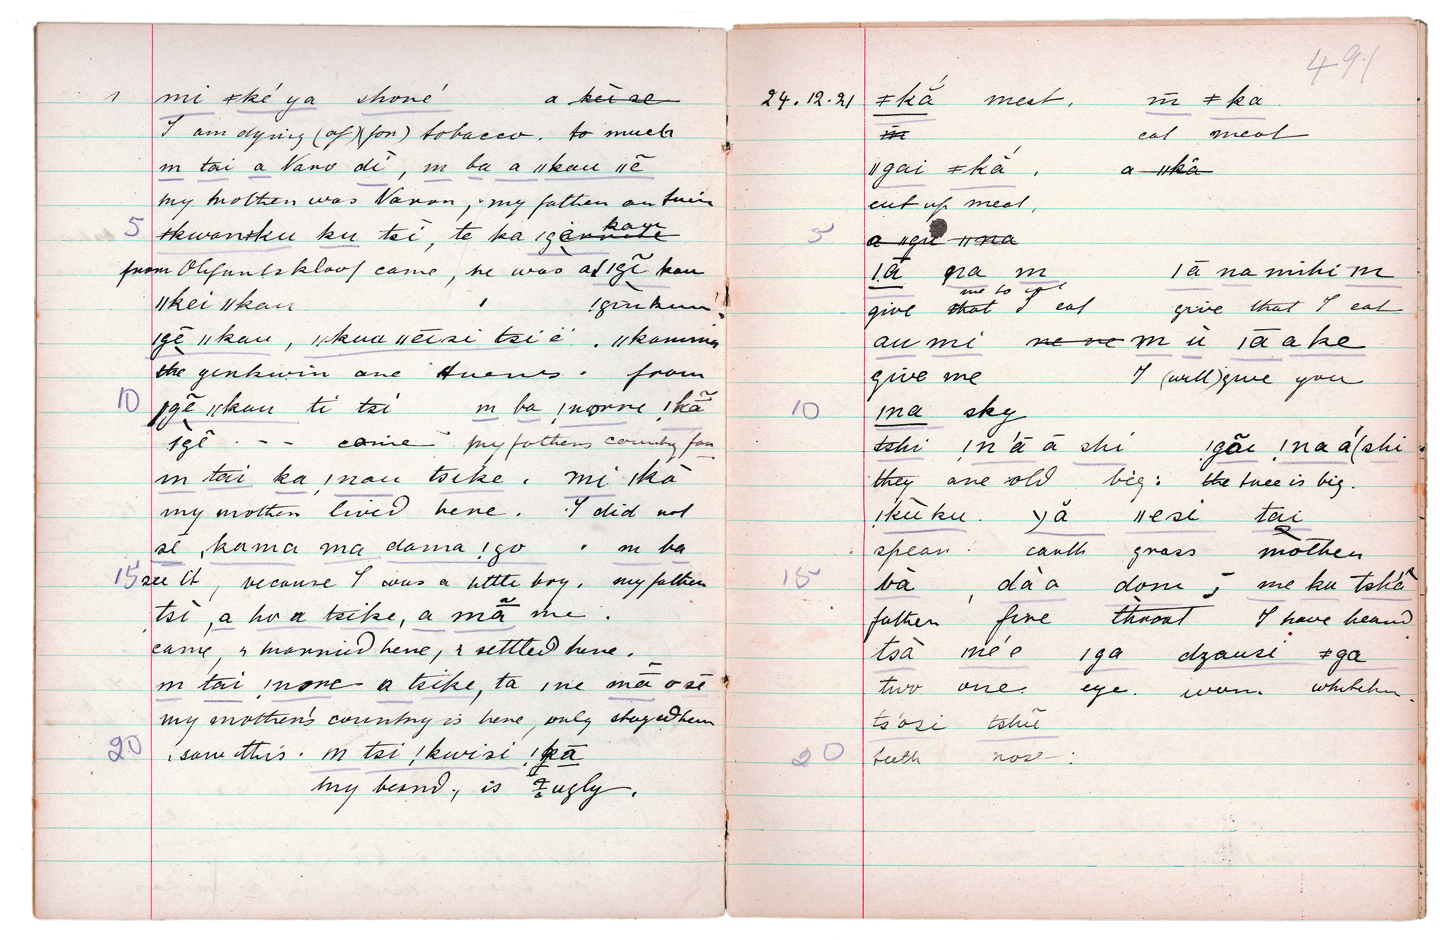 1 mi ǂké ya shoné a k̶e̶i̶ ̶s̶e̶
I am dying (of) (for) tobacco. to much
m tai a Naro dī, m ba a ǁkau ǁē
my mother was Naron, my father an tuin
5 ku tsí, te ka kaur
from Olifantskloof came, he was a ǀgẽ kau
ǁkei ǁkau ǃginkum
ǀgē ǁkau, ǁkua ǁēisi tsi é. ǁkamina
the ginkwin are Auens. from
10 ǀgē ǁkau ti tsi m ba ǃnorre ǃkā
ǀgē - - - came my fathers country far
m tai ka ǃnau tsike. mi ǀkā
my mother lived here. I did not
sē, kama ma dama ǃgo. m ba
15 see it, because I was a little boy. my father
tsi, a ho a tsike, a mā me.
came, & married here, & settled here.
m tai ǃnore a tsike, ta ǀne mā o sē
my mother's country is here, only stayed here
20 saw this. m tsi ǃkwisi ǃkā
my beard, is ugly.
491
24.12.21 ǂkā́ meat, m̄ ǂka
m̶ eat meat
ǁgai ǂkā́, a ǁ̶k̶ā̶
cut up meat,
5 a̶ ̶ǁ̶g̶u̶ ̶ǁ̶n̶a̶
ǀā na m ǀā na mihi m
me to eat
give t̶h̶a̶t̶ I eat give that I eat
au mi n̶e̶ ̶n̶e̶ m ù ǀā a ke
give me I (will) give you
10 ǀna sky
tshi ǃn'ā ā shi ǃgãu ǃna á (shi
they are old big: the tree is big.
ǃkūku. yā́ ǁesi tai
spear: earth grass mother
15 bā, dà a dom; me ku tsh'ā
father fire throat I have heard
tsā ǀné e ǀga dzausi ǂga
two one. eye. wom. whitehen
ts'osi tshū
20 teeth nose: